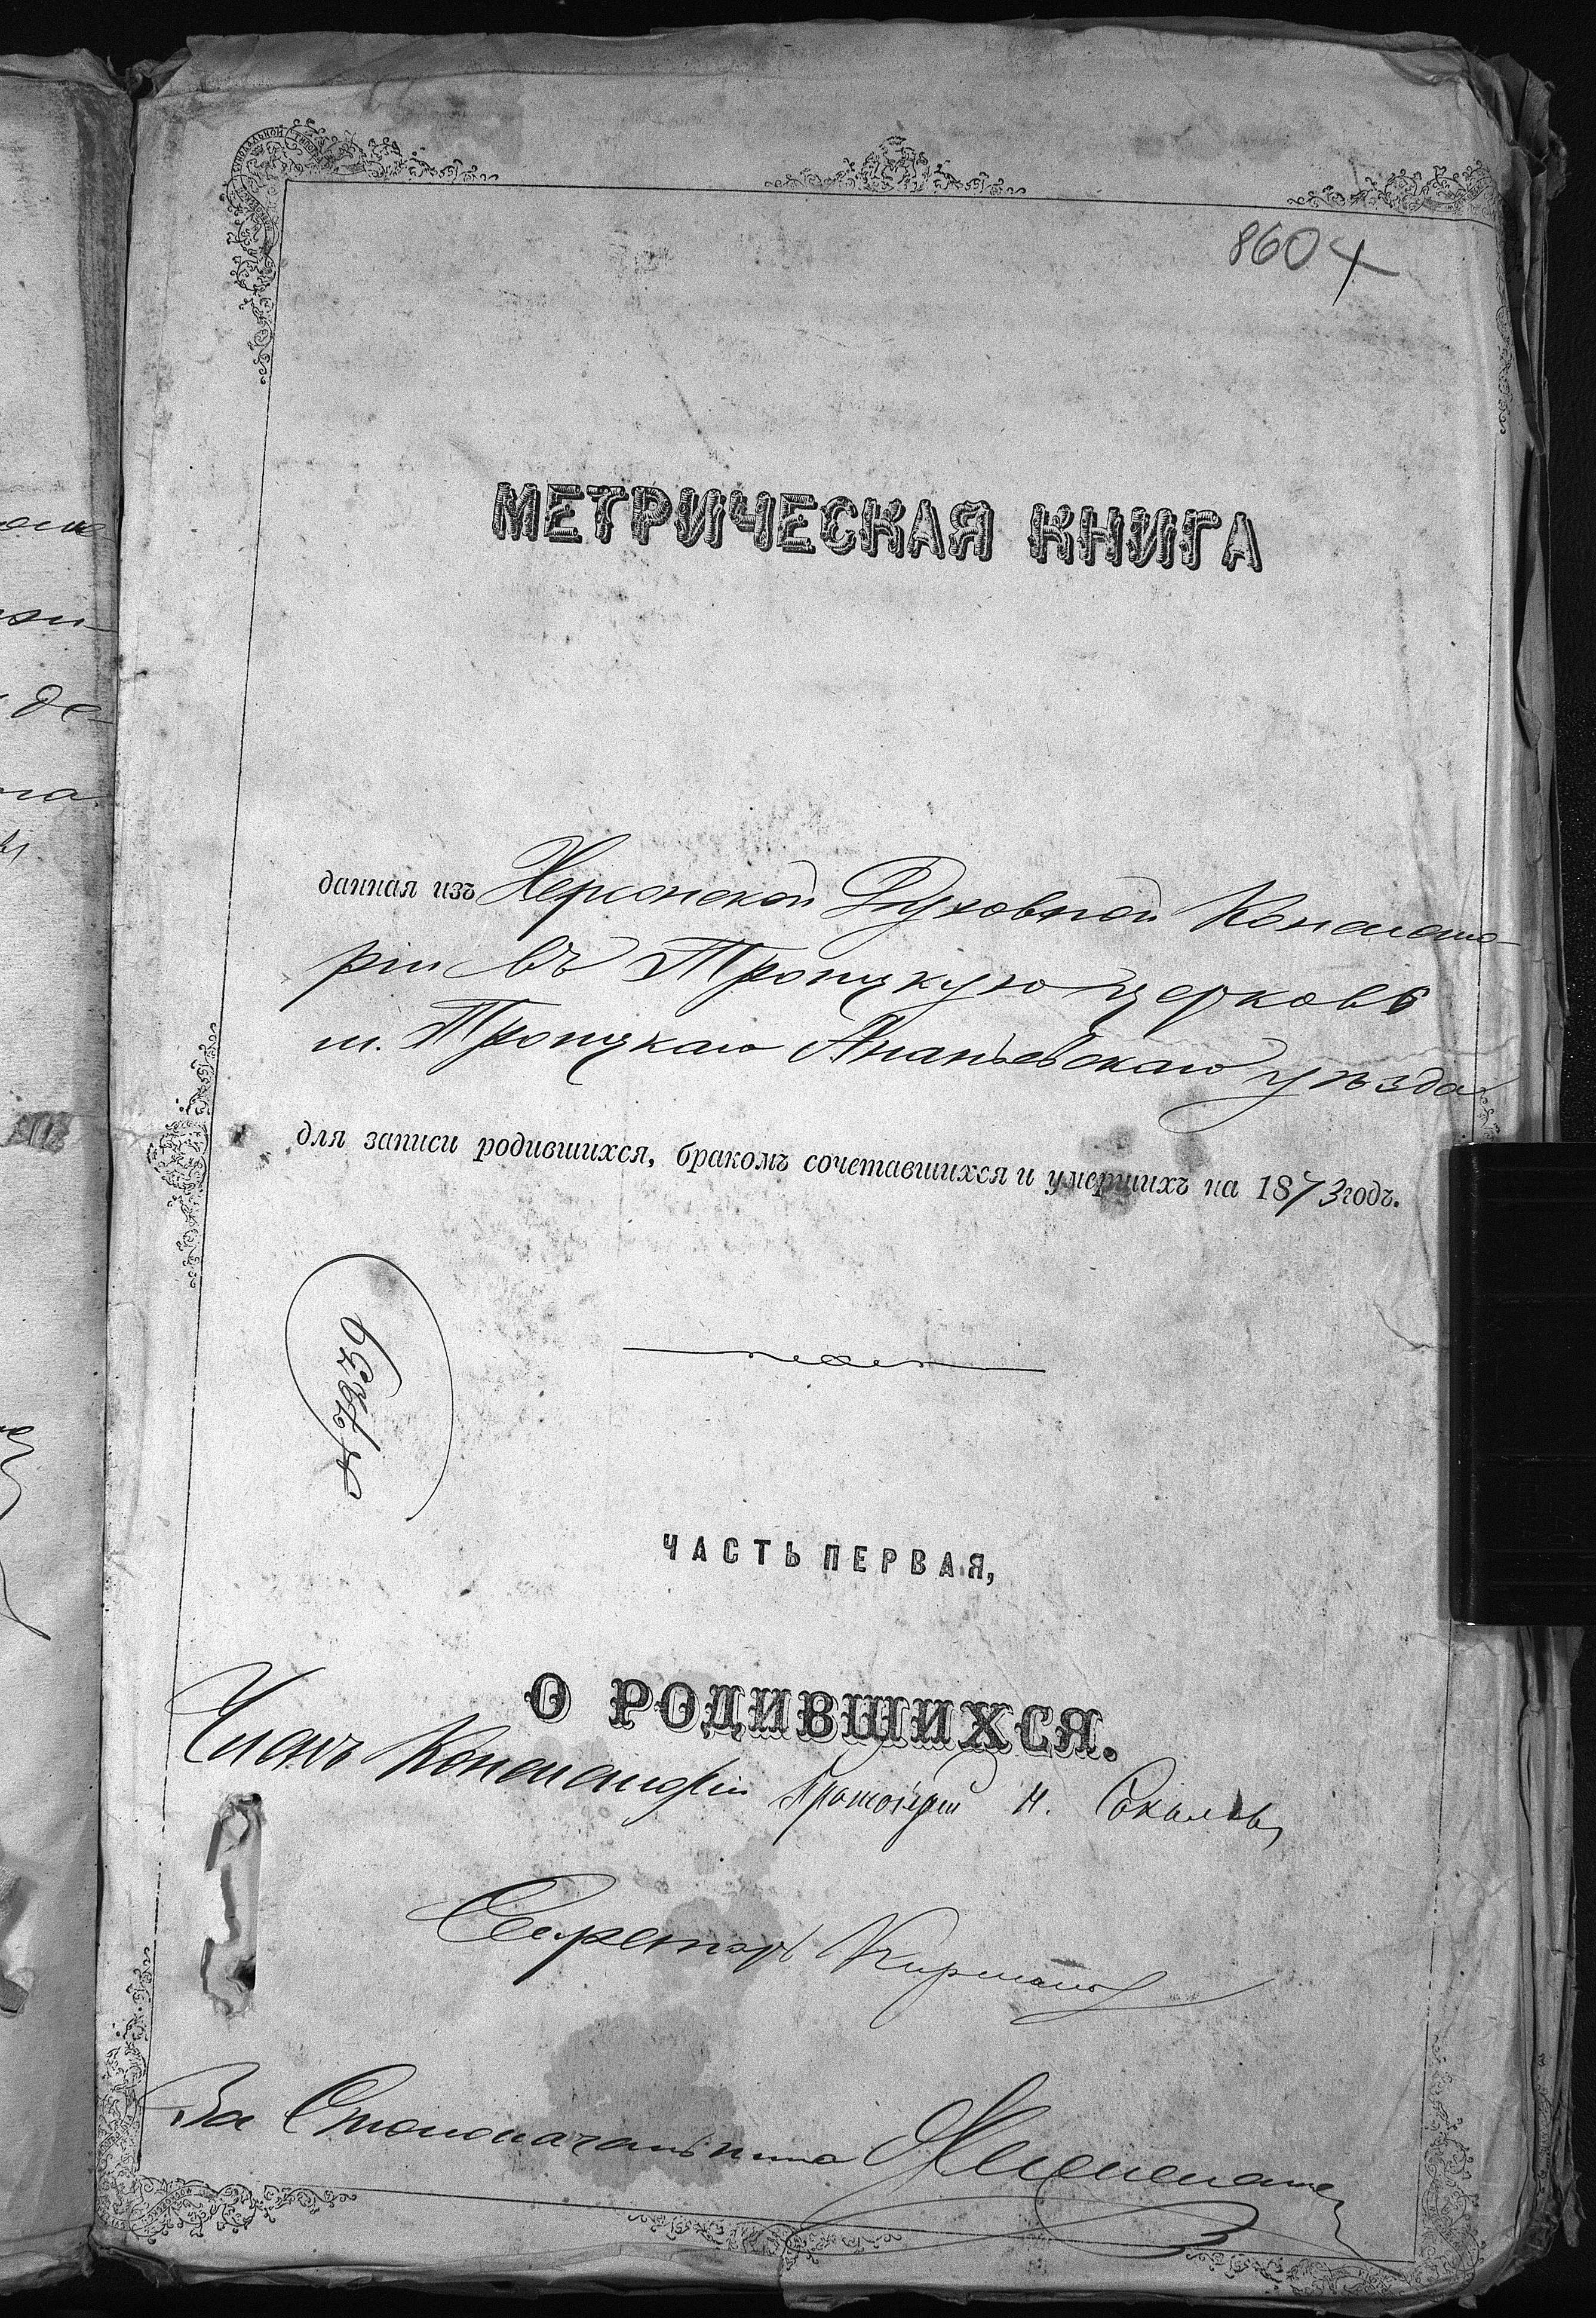 860 4
МЕТРИЧЕСКАЯ КНИГА
данная изъ Херсонской Духовной Консисто-
ріи въ Троицкую церковь
м. Троицкаго Ананьевскаго уѣзда
для записи родившихся, бракомъ сочетавшихся и умершихъ на 1873 годъ.
№ 7239
ЧАСТЬ ПЕРВАЯ,
О РОДИВШИХСЯ.
Членъ Консисторіи Протоіерей Н. Соколовъ
Секретарь
За Столоначальника